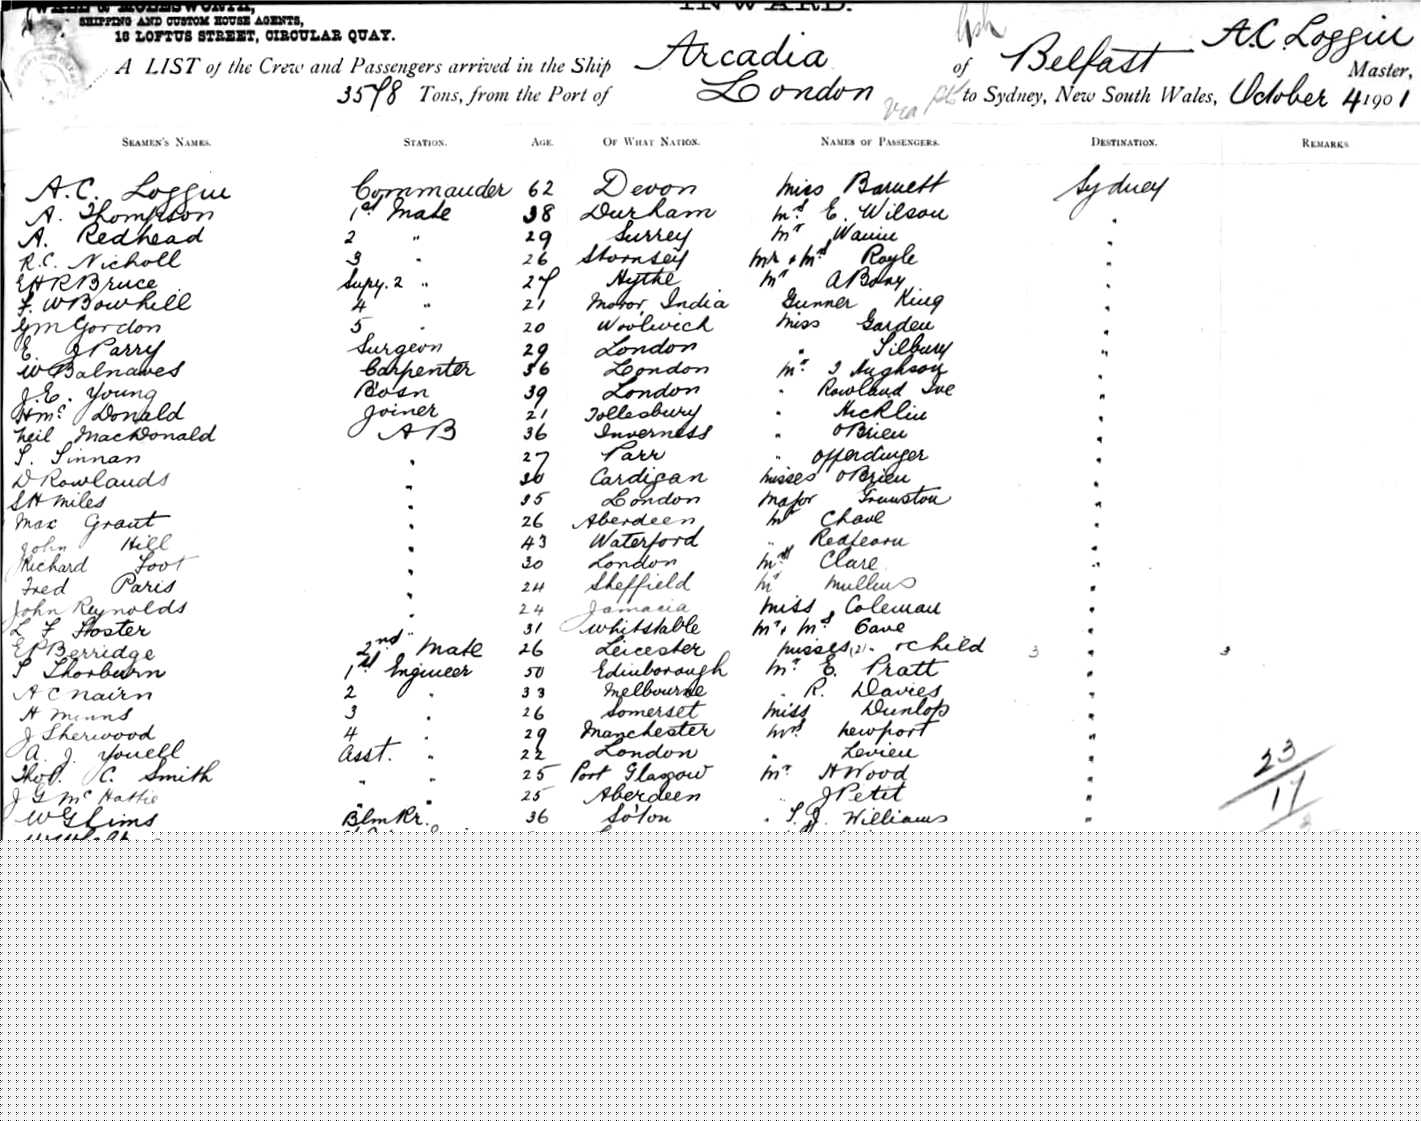 INWARD.
SHIPPING AND CUSTOM HOUSE AGENTS,
16 LOFTUS STREET, CIRCULAR QUAY.
A LIST of the Crew and Passengers arrived in the Ship Arcadia of Belfast A.C. Loggin Master,
3578 Tons, from the Port of London via to Sydney, New South Wales, October 4 1901
SEAMEN'S NAMES. STATION. AGE. OF WHAT NATION. NAMES OF PASSENGERS. DESTINATION. REMARKS
A.C. Loggin Commander 62 Devon Miss Barnett Sydney
A. Thompson 1st Mate 38 Durham Mrs E. Wilson "
A. Redhead 2 " 29 Surrey Mr "
R.C. Nicholl 3 " 26 Mr & Mrs Royle "
EHR Bruce Supy. 2 " 27 Hythe Mr "
F. W Bowhill 4 " 21 India Gunner King "
GM Gordon 5 " 20 Woolwich Miss Garden "
E. J Parry Surgeon 29 London " Tilbury "
W Balnaves Carpenter 36 London Mr J Hughson "
J.E. Young Bosn 39 London " Rowland Ive "
H Mc Donald Joiner 21 Tollesbury " Hicklin "
Neil MacDonald A B 36 Inverness " O'Brien "
T. Sinnan " 27 Parr " Offerdinger "
D Rowlands " 30 Cardigan Misses O'Brien "
S H Miles " 35 London Major "
Max Grant " 26 Aberdeen Mr Chave "
John Hill " 43 Waterford " Redfearn "
Richard Foot " 30 London Mrs Clare "
Fred Paris " 24 Sheffield Mr Mullens "
John Reynolds " 24 Jamacia Miss Coleman "
L F Hoster " 31 Whitstable Mr & Mrs Cave "
E P Berridge 2nd Mate 26 Leicester Misses (2). & Child 3 " 3
T Thorburn 1st Engineer 50 Edinborough Mr E. Pratt "
A C Nairn 2 " 33 Melbourne " R. Davies "
H Minns 3 " 26 Somerset Miss Dunlop "
J Sherwood 4 " 29 Manchester Mrs Newport "
A. J. Youell Asst. " 22 London " Levien "
Thos. C. Smith " " 25 Port Glasgow Mr H Wood "
J G Mc Hattie " " 25 Aberdeen " J Petit "
W G Sims Blmkr. 36 So'ton " T. J. Williams "
23
17